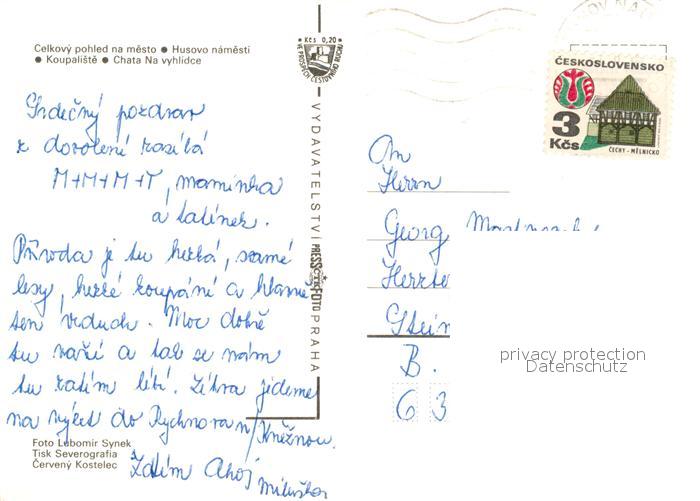 Celkový pohled na město ● Husovo náměstí
● Koupaliště ● Chata Na vyhlídce
Srdečný pozdrav
z dovolené zasílá
M+M+M+T, maminka
a tatínek.
Příroda je tu hezká, samé
lesy, hezké koupání a hlavně
ten vzduch. Moc dobře
tu vaří a tak se nám
tu zatím líbí. Zítra jedeme
na výlet do Rychnova n/Kněžnou.
Zatím Ahoj
Miluška
Foto Lubomír Synek
Tisk Severografia
Červený Kostelec
Kčs 0,20
VE PROSPĚCH CESTOVNÍHO RUCHU
VYDAVATELSTVÍ PRESSFOTO PRAHA
ČESKOSLOVENSKO
3
Kčs
ČECHY - MĚLNICKO
An
Herrn
Georg
B.
6 3
privacy protection
Datenschutz